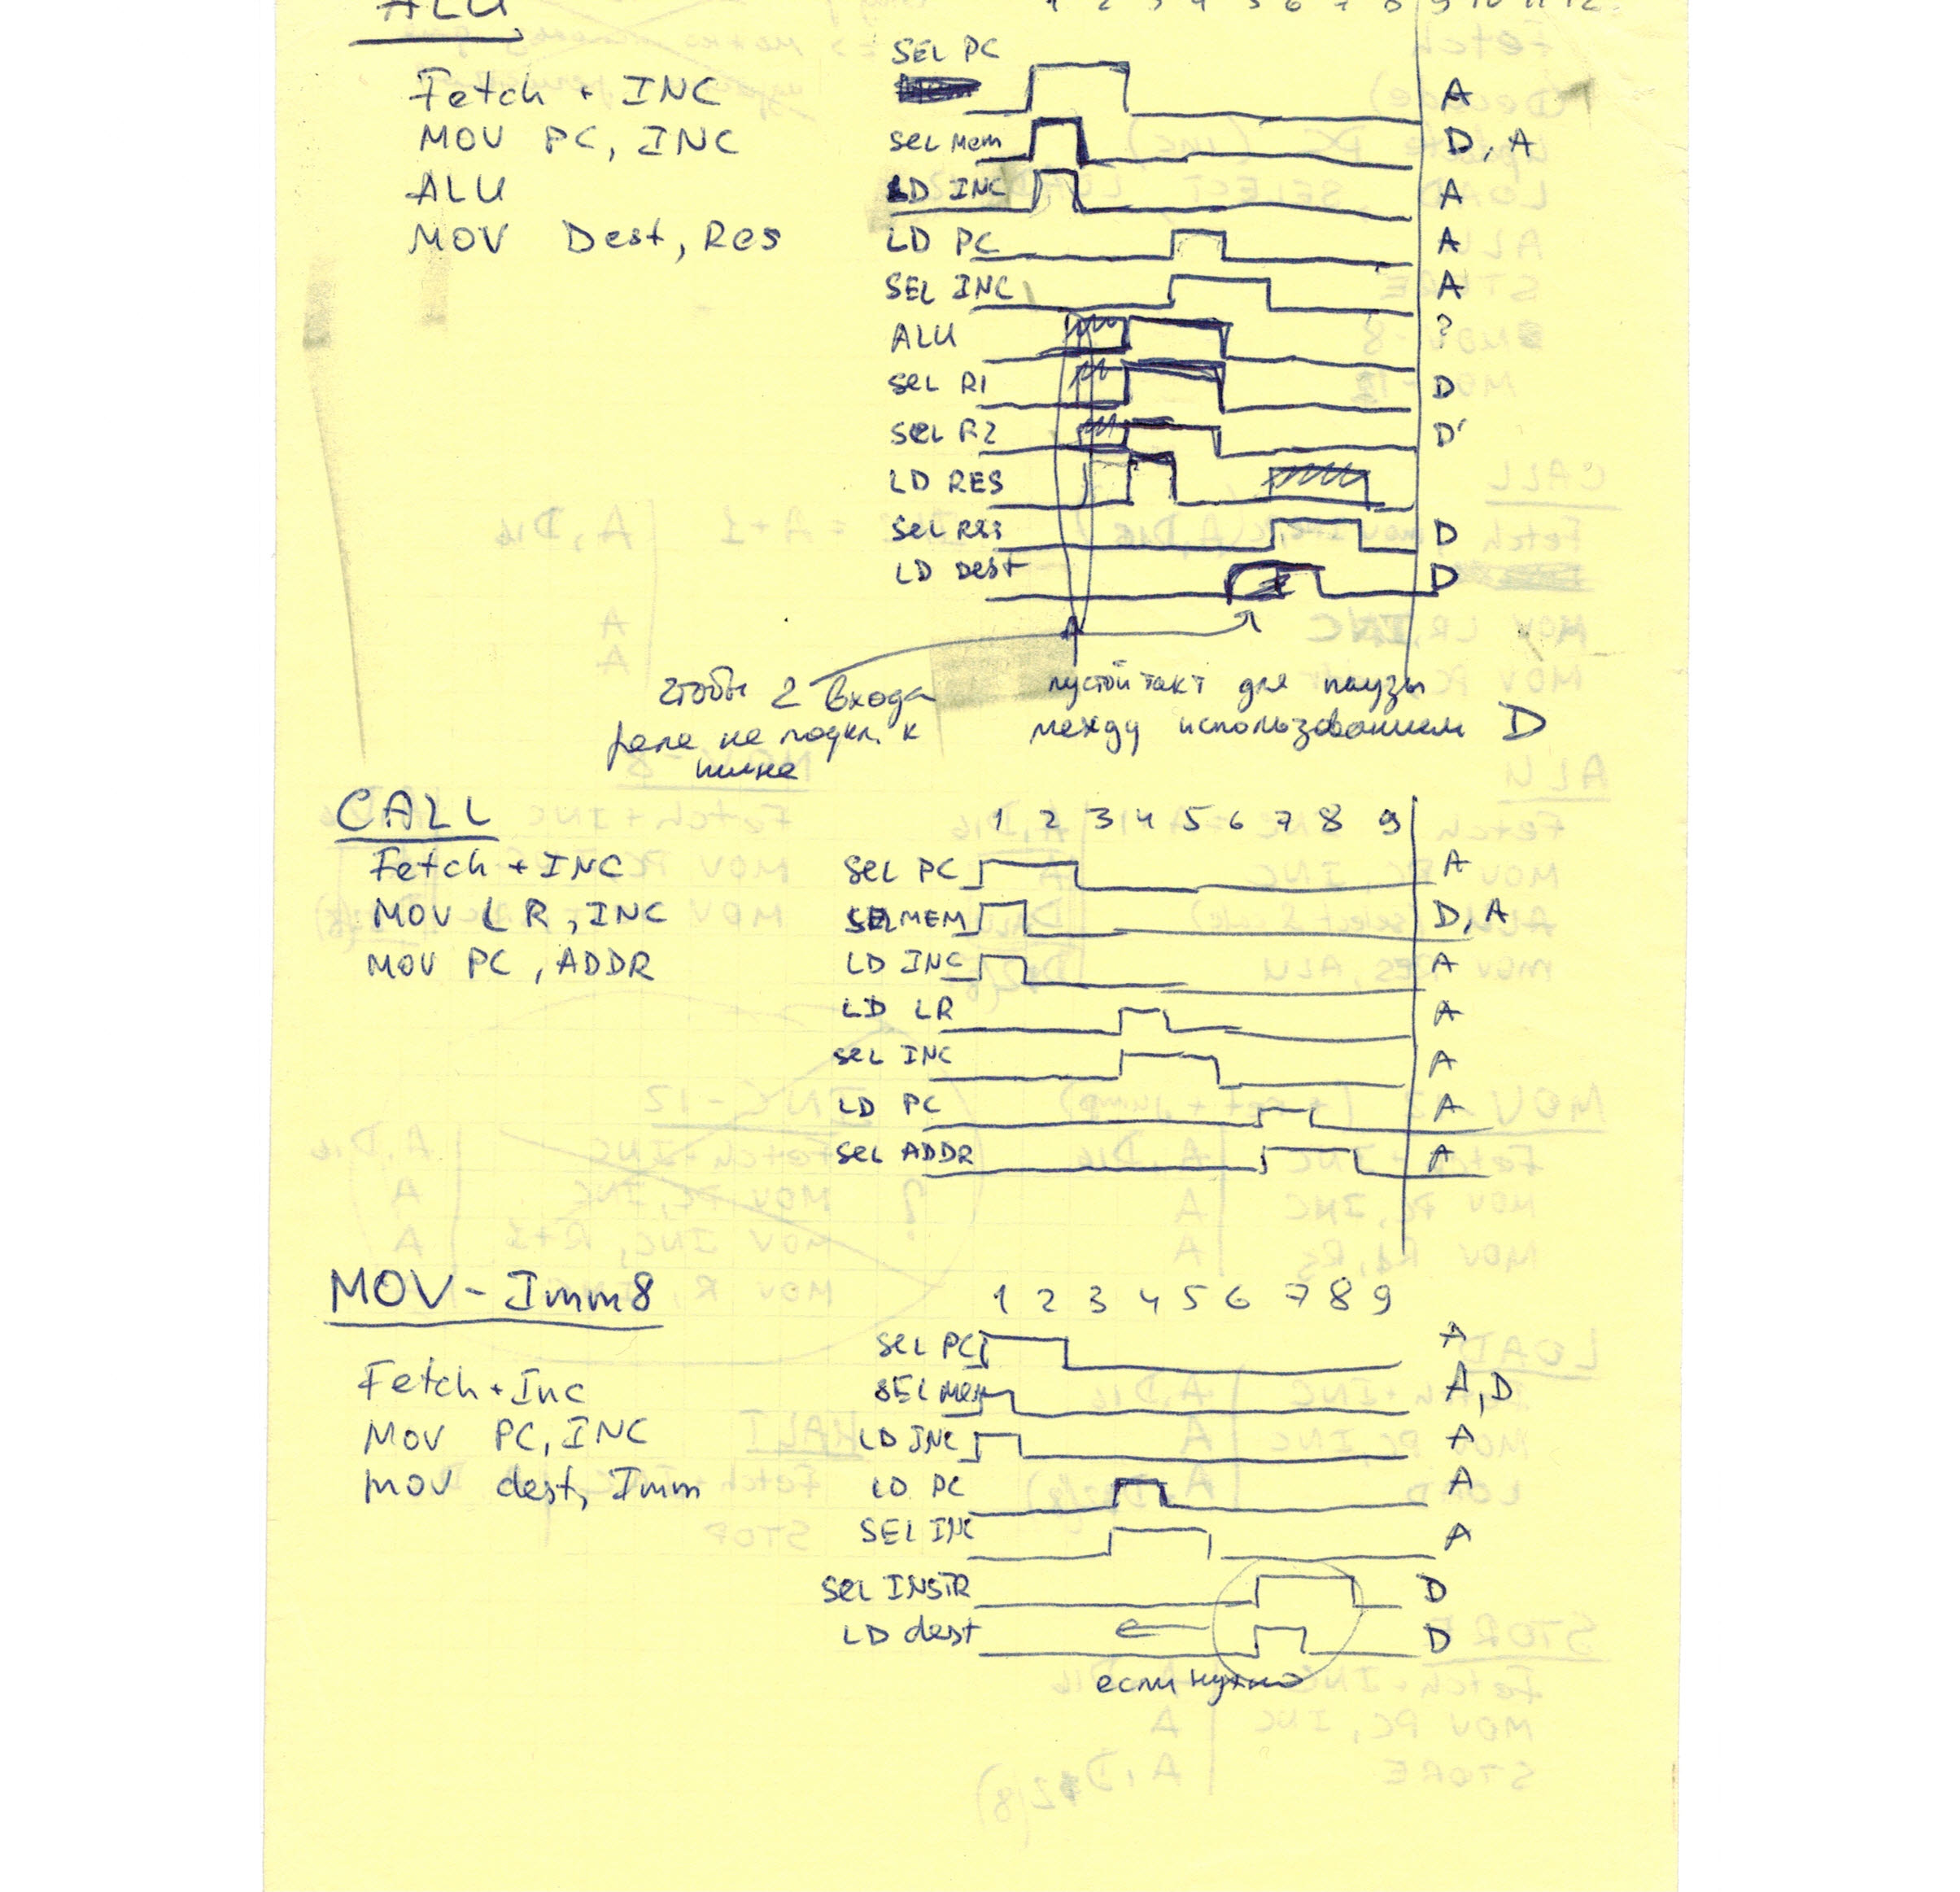 ALU
1 2 3 4 5 6 7 8 9 10 11 12
Fetch + INC
MOV PC, INC
ALU
MOV Dest, Res
SEL PC A
Sel Mem D, A
LD INC A
LD PC A
SEL INC A
ALU ?
Sel R1 D
Sel R2 D'
LD RES
Sel RES D
LD Dest D
чтобы 2 входа
реле не подкл. к
шине
пустой такт для паузы
между использованием D
CALL
1 2 3 4 5 6 7 8 9
Fetch + INC
MOV LR, INC
MOV PC, ADDR
Sel PC A
SEL MEM D, A
LD INC A
LD LR A
Sel INC A
LD PC A
Sel ADDR A
MOV - Imm8
1 2 3 4 5 6 7 8 9
Fetch + Inc
MOV PC, INC
MOV dest, Imm
Sel PC A
SEL Mem A, D
LD INC A
LD PC A
SEL INC A
Sel INSTR D
LD dest D
если нужно